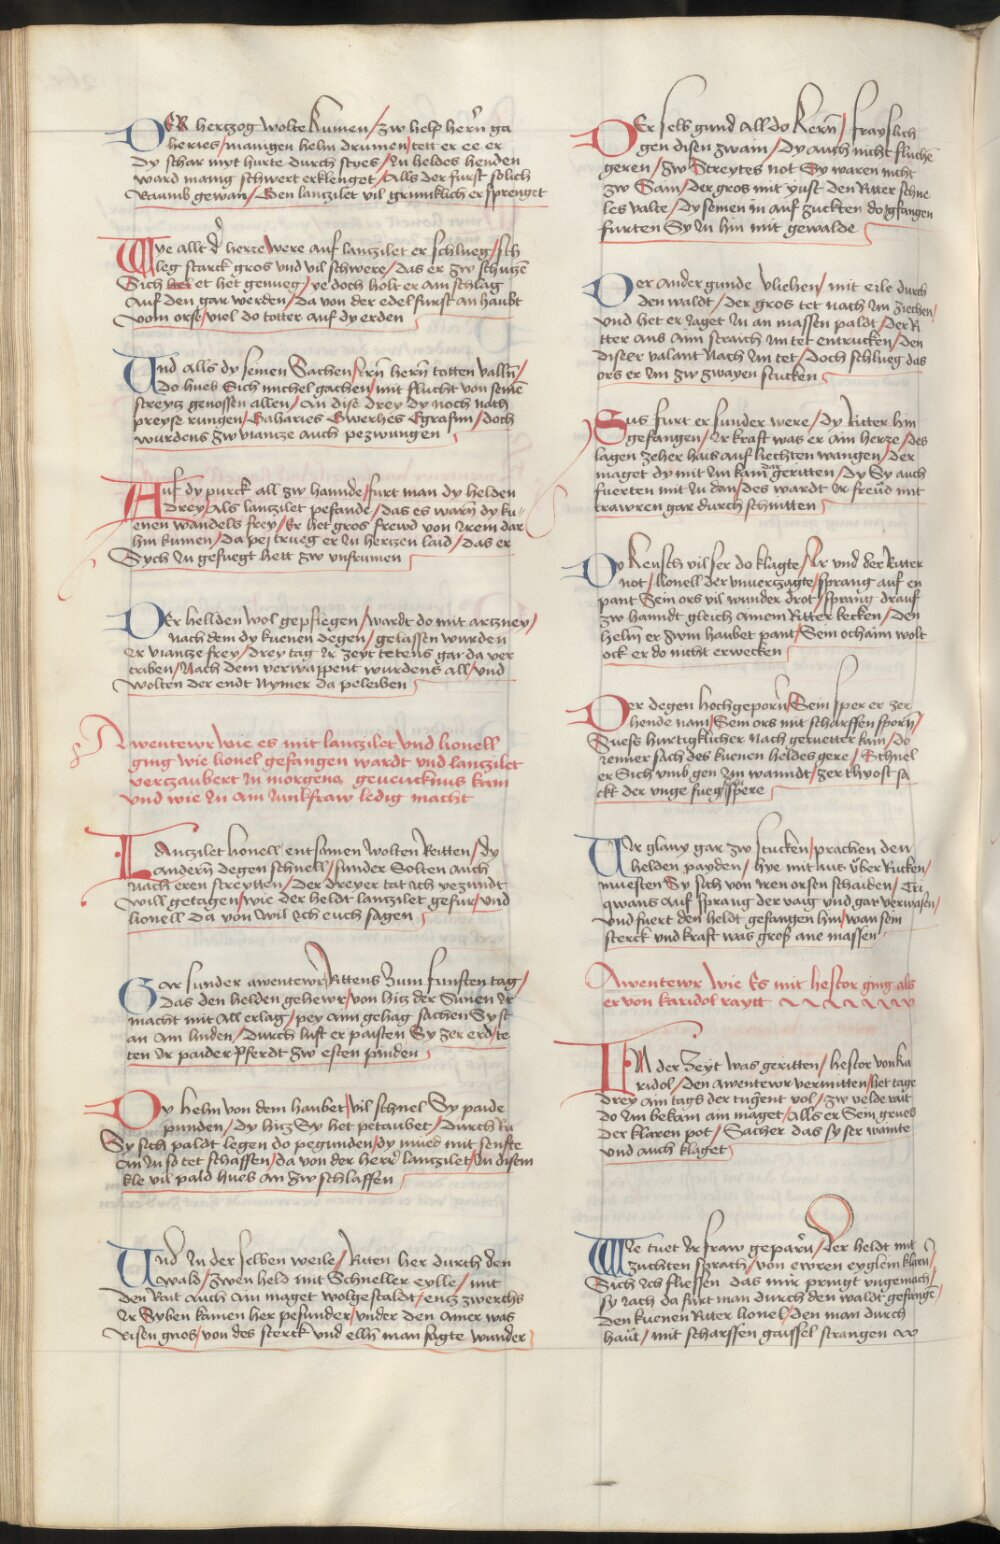 DER hertzog wolte kumen / zw help hern ga
heries / manigen helm drumen / tett er ee er
Dy schar myt hurte durch stoes / In heldes henden
ward manig schwert erklenget / Alls der furst solich
Raumb gewan / Gen lantzilet vil grimiklich er sprenget
Wye allt der herre were auf lantzilet er schlueg / sch
leg starck gros und vil schwere / das er zw schutzn
Sich et het genueg / ye doch holt er am schlag
Auf den gar werden / da von der edel furst an haubt
vom orse / viel do totter auf dy erden
Und alls dy seinen Sachen / Irn hern totten valln /
Do hueb Sich michel gachen / mit flucht von seinen
streytz genossen allen / An dise drey dy noch nach
preyse rungen / Gaharies Gwerhes Egrafin / doch
wurdens zw viantze auch pezwungen
Auf dy purck all zw hannde / furt man dy helden
drey / Als lantzilet pesande / das es warn dy ku
enen wandels frey / Er het gros frewd von Irem dar
hin kumen / da pej trueg er In hertzen laid / das er
Sych In gefuegt hett zw unfrumen
Der hellden wol gepflegen / wardt do mit artzney /
nach dem dy kuenen degen / gelassen wurden
Ir viantze frey / drey tag Ir zeyt tetens gar da ver
triben / Nach dem verwappent wurdens all / und
wolten der endt Nymer da peleiben
Awentewr wie es mit lantzilet und lionell
ging wie lionel gefangen wardt und lantzilet
vertzaubert In morgens gevencknus kam
und wie In am Iunkfraw ledig macht
Lantzilet lionell entsamen wolten Reitten / dy
andern degen schnell / sunder Solten auch
nach eren streytten / Der dreyer tat ich yezundt
will getagen / wie der heldt lantzilet gefur / und
lionell da von wil Ich euch sagen
Gar sunder awentewr / Rittens zum funften tag /
das den helden gehewr / von hitz der Sunen Ir
macht mit All erlag / pey aim gehag sachen Sy st
an am linden / Durch luft er paisten Sy zer erd / te
ten Ir paider pferdt zw esten pinden
Dy helm von dem haubet / vil schnel Sy paide
punden / dy hitz Sy het petaubet / durch Ru
Sy sich paldt legen do pegunden / dy mued mit senfte
an In so tet schaffen / da von der herr lantzilet / In disem
kle vil pald hueb an zw schlaffen
Und In der selben weile / Riten her durch den
wald / zwen held mit Schneller eylle / mit
den Rait auch ain maget wolgestaldt / entz zwerchs
Ir Syben kamen her pesunder / under den ainer was
Risen gros / von des sterck und elln man sagte wunder
Der selb gund all do kern / frayslich
gen disen zwain / dy auch nicht fluchen
geren / zw Streytes not Sy waren nicht
zw Sain / der gros mit Just den Ritter schne
les valte / dy seinen in auf zuckten do gfangen
furten Sy In hin mit gewalde
Der ander gunde vliehen / mit eile durch
den waldt / der gros tet nach Im ziechen /
und het er Iaget In an massen paldt / der Ri
tter ans aim straich Im tet entrucken / den
diseer valant nach Im tet / Doch schlueg das
ors er Im zw zwayen stucken
Sus furt er sunder were / dy Ritter hin
gefangen / Ir kraft was er ain herre / des
lagen zeher hais auf liechten wangen / der
maget dy mit Im kam dar geritten / dy Sy auch
fuerten mit In dan / des wardt Ir freud mit
trawren gar durch schnitten
Dy kensch vil ser do klagte / Ir und der Ritter
not / lionell der unvertzagte / sprang auf en
pant Sein ors vil wunder drot / sprang drauf
zw hanndt gleich ainem Ritter kecken / Den
helm er zwm haubet pant / Sein ochaim wolt
ock er do nicht erwecken
Der degen hochgeporn / Sein sper er zer
hende nam / Sein ors mit scharffen sporn /
Suess hurtigklicher nach gerueter kam / do
yenner sach des kuenen heldes gere / Schnel
er Sich umb gen Im wanndt / zer thyost sa
ckt der unge fueg spere
Ir glany gar zw stucken / prachen den
helden payden / hye mit aut uber Rucken /
muesten Sy sich von Iren orsen schaiden / Tri
qwans auf sprang der vaig und gar verwasen /
Und fuert den heldt gefangen hin / wan sein
sterck und kraft was groß ane massen
Awentewr wie Es mit hestor ging als
er von karidol raytt
In der Zeyt was geritten / hestor von ka
ridol / den awentewr vermitten / het tage
drey ain tags der tugent vol / zw velde rait
do Im bekam ain maget / alls er Sein grues
der klaren pot / Sacher das sy ser wainte
und auch klaget
Wie tuet Ir fraw geparn / der heldt mit
zuchten sprach / von ewren euglein klarn /
Sich Ich fliessen das mir pringt ungemach /
sy Iach da furt man durch den waldt gefangen /
den kuenen Ritter lionel / den man durch
haut / mit scharffen gaissel strangen